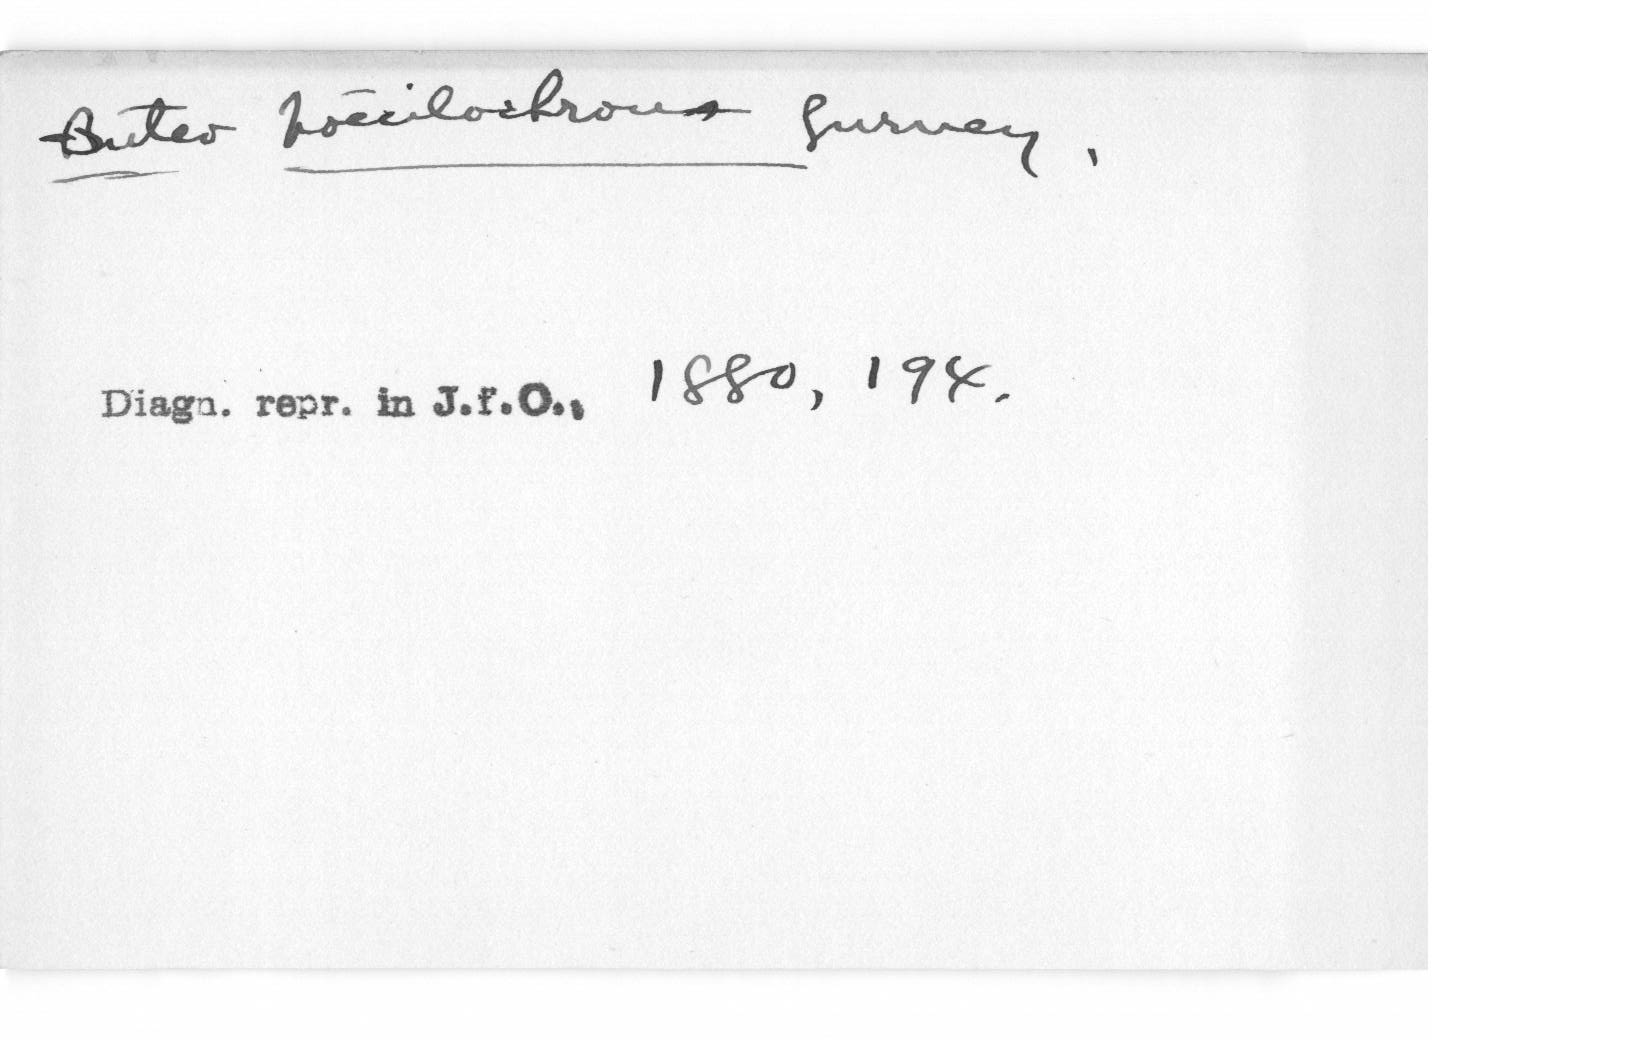 Buteo poecilochrous Gurney.
Diagn. repr. in J.f.O., 1880, 194.